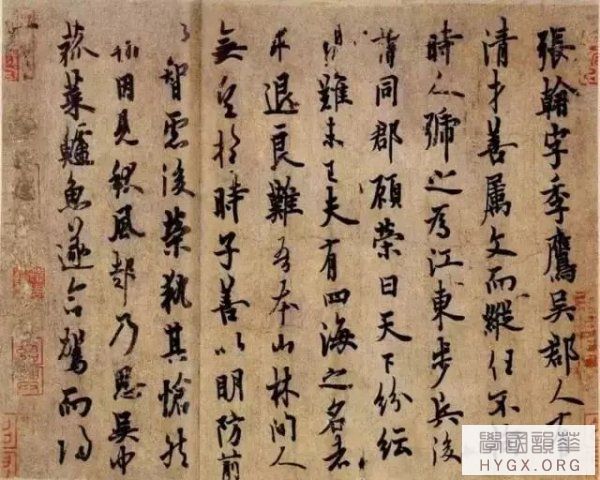 張翰字季鷹吳郡人有
清才善屬文而縱任不
時人號之為江東步兵後
謂同郡顧榮曰天下紛紜
禍難未已夫有四海之名者
求退良難吾本山林間人
無望於時子善以明防前
以智慮後榮執其愴然
翰因見秋風起乃思吳中
菰菜鱸魚遂命駕而歸
學國韻華
HYGX.ORG